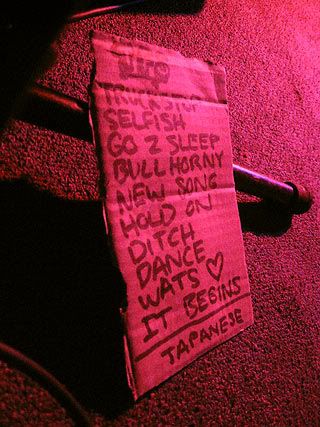 SELFISH
GO 2 SLEEP
BULLHORNY
NEW SONG
HOLD ON
DITCH
DANCE
WATS ♡
IT BEGINS
TAPANESE